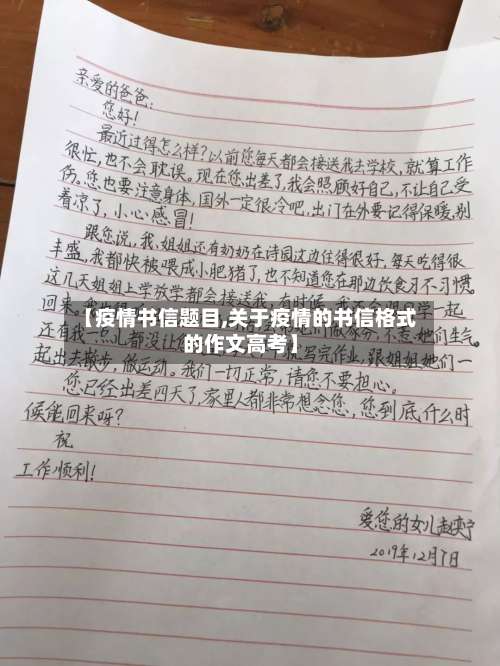 亲爱的爸爸：
您好！
最近过得怎么样？以前您每天都会接送我去学校，就算工作
很忙，也不会耽误。现在您出差了，我会照顾好自己，不让自己受
伤。您也要注意身体，国外一定很冷吧，出门在外要记得保暖，别
着凉了，小心感冒！
跟您说，我、姐姐还有奶奶在诗园这边住得很好，每天吃得很
丰盛，我都快被喂成小肥猪了，也不知道您在那边饮食习不习惯。
这几天姐姐上学放学都会接送我，有时候
回来。我
【疫情书信题目,关于疫情的书信格式
的作文高考】
还有我一点儿都没让
不惹她们生气。
写完作业，跟姐姐她们一
起出去散步，做运动。我们一切正常，请您不要担心。
您已经出差四天了，家里人都非常想念您，您到底什么时
候能回来呀？
祝
工作顺利！
爱您的女儿赵
2019年12月7日